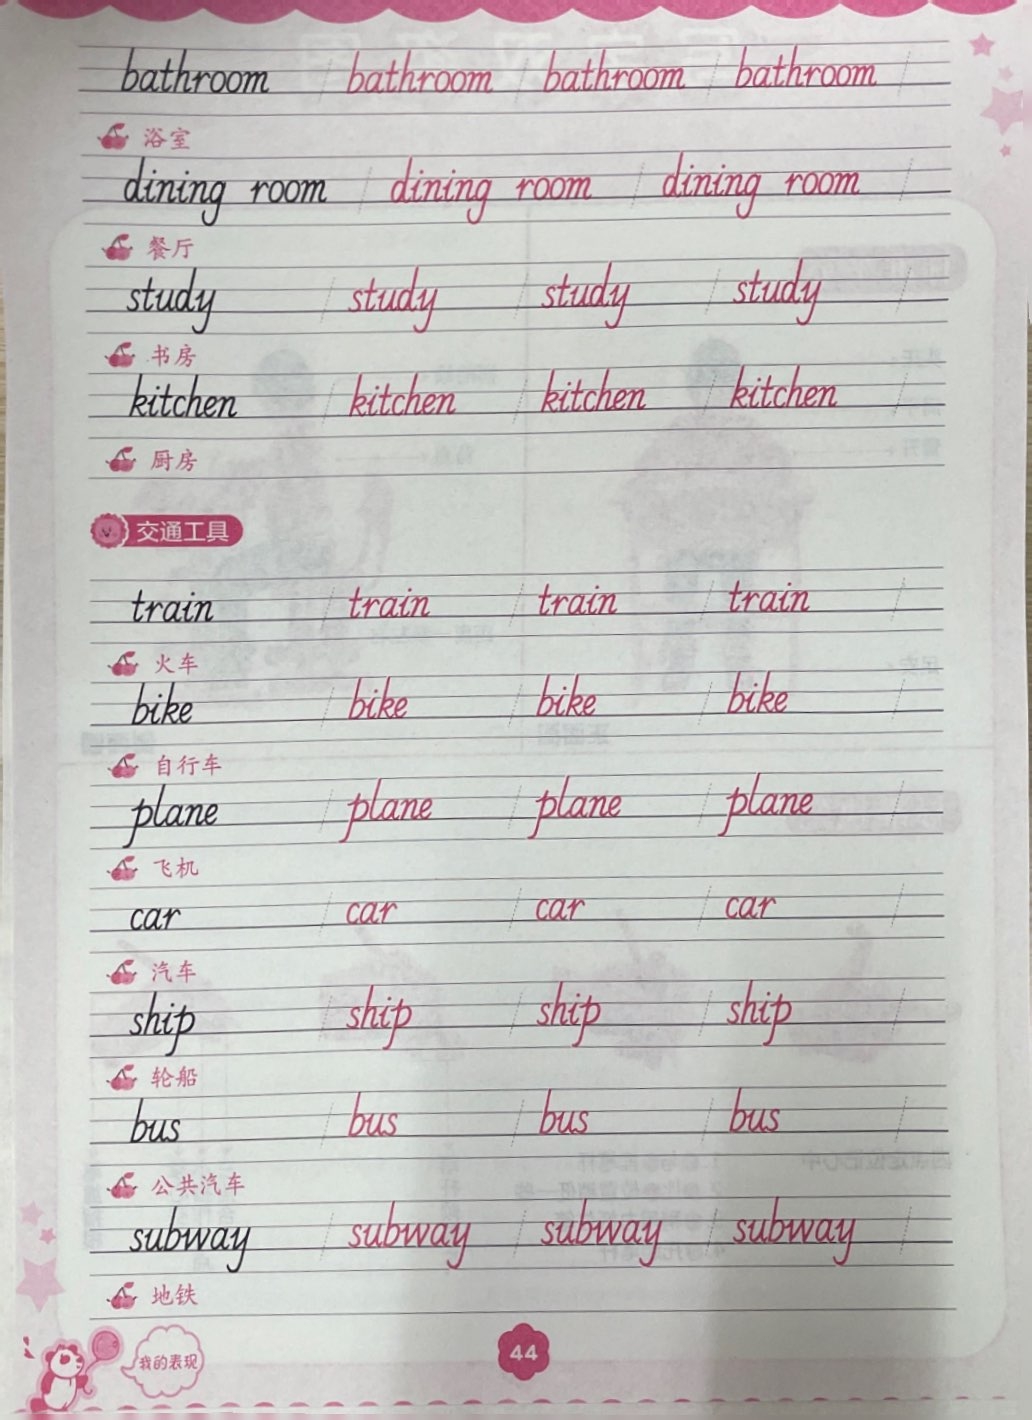 bathroom bathroom bathroom bathroom
浴室
dining room dining room dining room
餐厅
study study study study
书房
kitchen kitchen kitchen kitchen
厨房
交通工具
train train train train
火车
bike bike bike bike
自行车
plane plane plane plane
飞机
car car car car
汽车
ship ship ship ship
轮船
bus bus bus bus
公共汽车
subway subway subway subway
地铁
我的表现
44